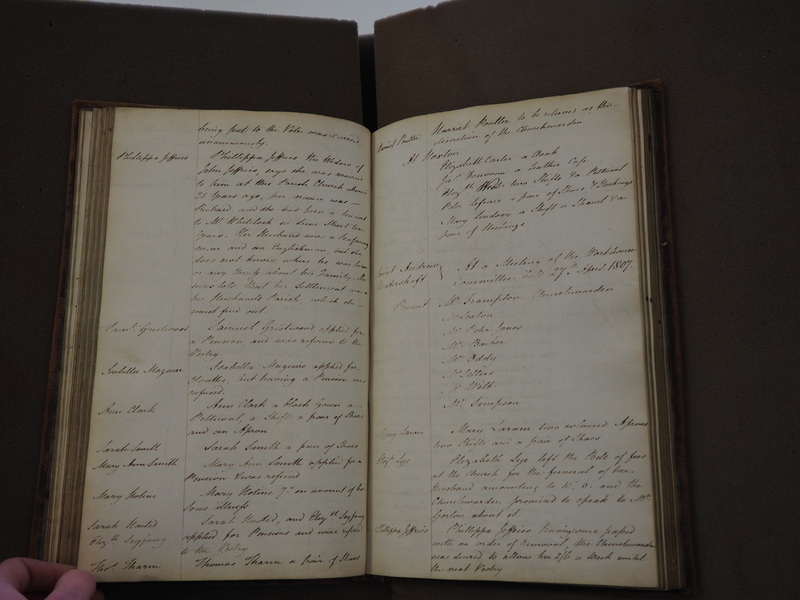 being put to the Vote was carried
unanimously.
Philippa Jeffries Phillippa Jeffries the Widow of
John Jeffries, says she was married
to him at this Parish Church about
25 years ago, her name was
and she had been a servant
to Mr Whitlock in Street two
years. Her Husband was a Seafaring
man and an Englishman, but she
does not know where he was born
or any thing about his Family. She
was told that her settlement was
her Husband's Parish, which she
must find out
Saml. Gristwood Samuel Gristwood applied for
a Pension and was referred to the
Vestry.
Isabella Maguire Isabella Maguire applied for
Cloaths, but having a Pension was
refused.
Ann Clark Ann Clark a Black Gown a
Petticoat, a Shift a pair of Shoes
and an Apron
Sarah Smith Sarah Smith a pair of Shoes
Mary Ann Smith Mary Ann Smith applied for a
Pension & was refused
Mary Holine Mary Holine 7/- on account of her
Sons illness
Sarah Hasted Sarah Hasted, and Elizth.
Elizth. applied for Pensions and were referred
to the Vestry
Thos. Tharm Thomas Tharm a pair of Shoes
Harriet Poulter to be relieved at the
discretion of the Churchwarden
At Hoxton
Elizabeth Carter a Cloak
a Leather Cap
Elizth. two Shifts & a Petticoat
Peter a pair of Shoes & Stockings
Mary Lindsay a Shift a Shawl & a
pair of Stockings
Saint Andrew
Undershaft At a Meeting of the Workhouse
Committee 27th. April 1807.
Present Mr Frampton Churchwarden
Mr Gorton
Mr Peter Jones
Mr Barber
Mr Addy
Mr Sellers
Mr Witt
Mr Simpson
Mary Laram Mary Laram two coloured Aprons
two Shifts and a pair of Shoes
Elizabeth left the Bill of fees
at the Church for the funeral of her
Husband amounting to and the
Churchwarden promised to speak to Mr
Gorton about it
Phillippa Jeffries Phillippa Jeffries having been passed
with an order of Removal, the Churchwarden
was desired to allow her 2/6 a Week until
the next Vestry